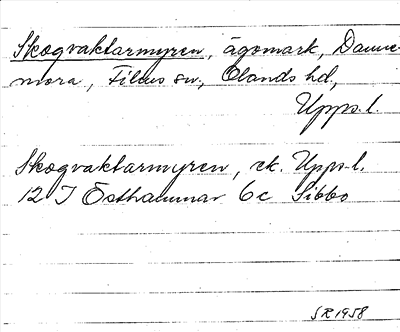 Skogvaktarmyren, ägomark, Danne-
mora, Films sn., Olands hd.,
Upps. l.
Skogvaktarmyren, ek. Upps. l.
12 I Östhammar 6c Sibbo
SR 1958